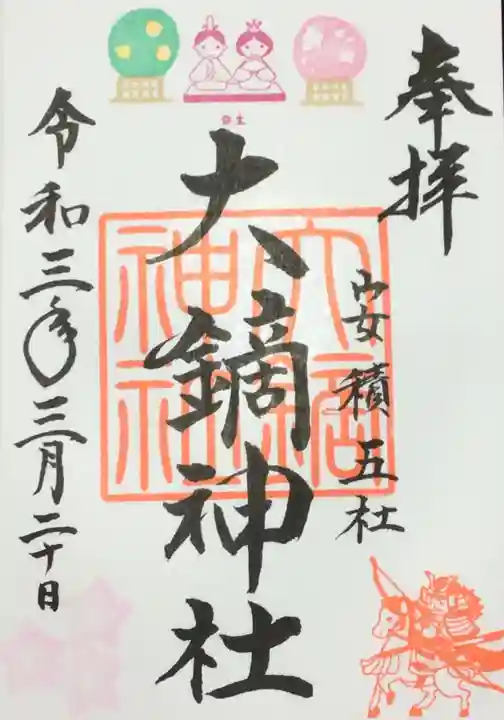 奉拝
安積五社
大鏑神社
令和三年三月二十日
弥生
大鏑神社